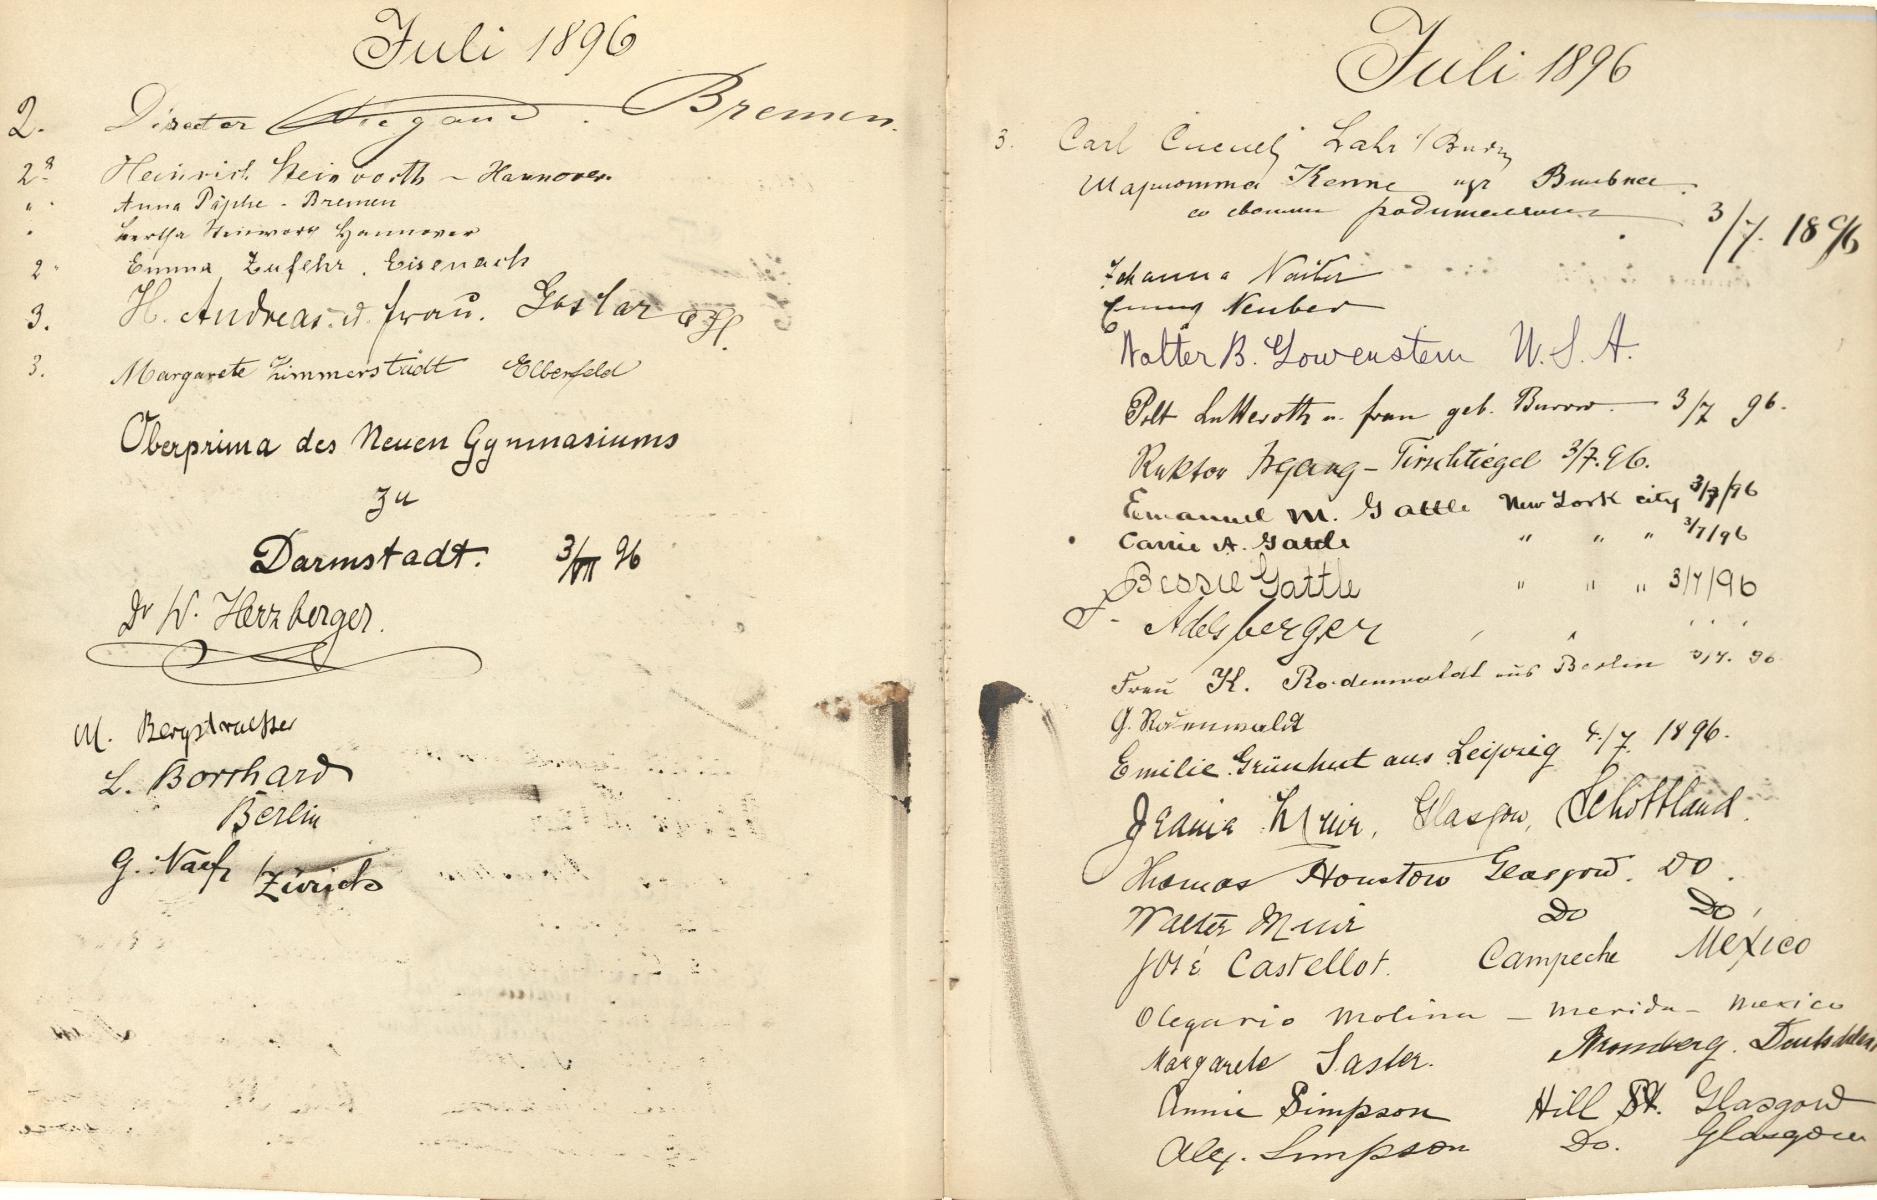 Juli 1896
2. Director Wiegand. Bremen.
2. Heinrich Steinvorth – Hannover.
" Anna Päpke - Bremen
" Hannover
2 " Emma Zufehr, Eisenach
3. H. Andreas u. Frau. Goslar a/H.
3. Margarete Zimmerstädt Elberfeld
Oberprima des Neuen Gymnasiums
zu
Darmstadt. 3/VII 96
Dr W. Herzberger.
M. Bergstraesser
L. Borchard
Berlin
G. Naef, Zürich
Juli 1896
3. Carl Lahr
Шарлотта Кенне изъ
со своими родителями 3/7. 1896
Johanna
Emmy Neuber
Walter B. Lowenstein U.S.A.
Lutteroth u. Frau geb. Burow. — 3/7 96.
Rektor Irgang – Tirschtiegel 3/7.96.
Emanuel M. Gattle New York city 3/7/96
Carrie A. Gattle " " " 3/7/96
Bessie Gattle " " " 3/7/96
J. Adelsberger " " " "
Frau K. Rodenwaldt aus Berlin 3/7. 96
G. Rodenwaldt
Emilie Grünhut aus Leipzig 4./7. 1896.
Jeanie Muir, Glasgow, Schottland.
Thomas Houston Glasgow. Do.
Walter Muir Do Do,
José Castellot. Campeche Mexico
Olegario Molina – Merida – Mexico
Margarete Saster. Bromberg.
Annie Simpson Hill St. Glasgow
Alex. Simpson Do. Glasgow